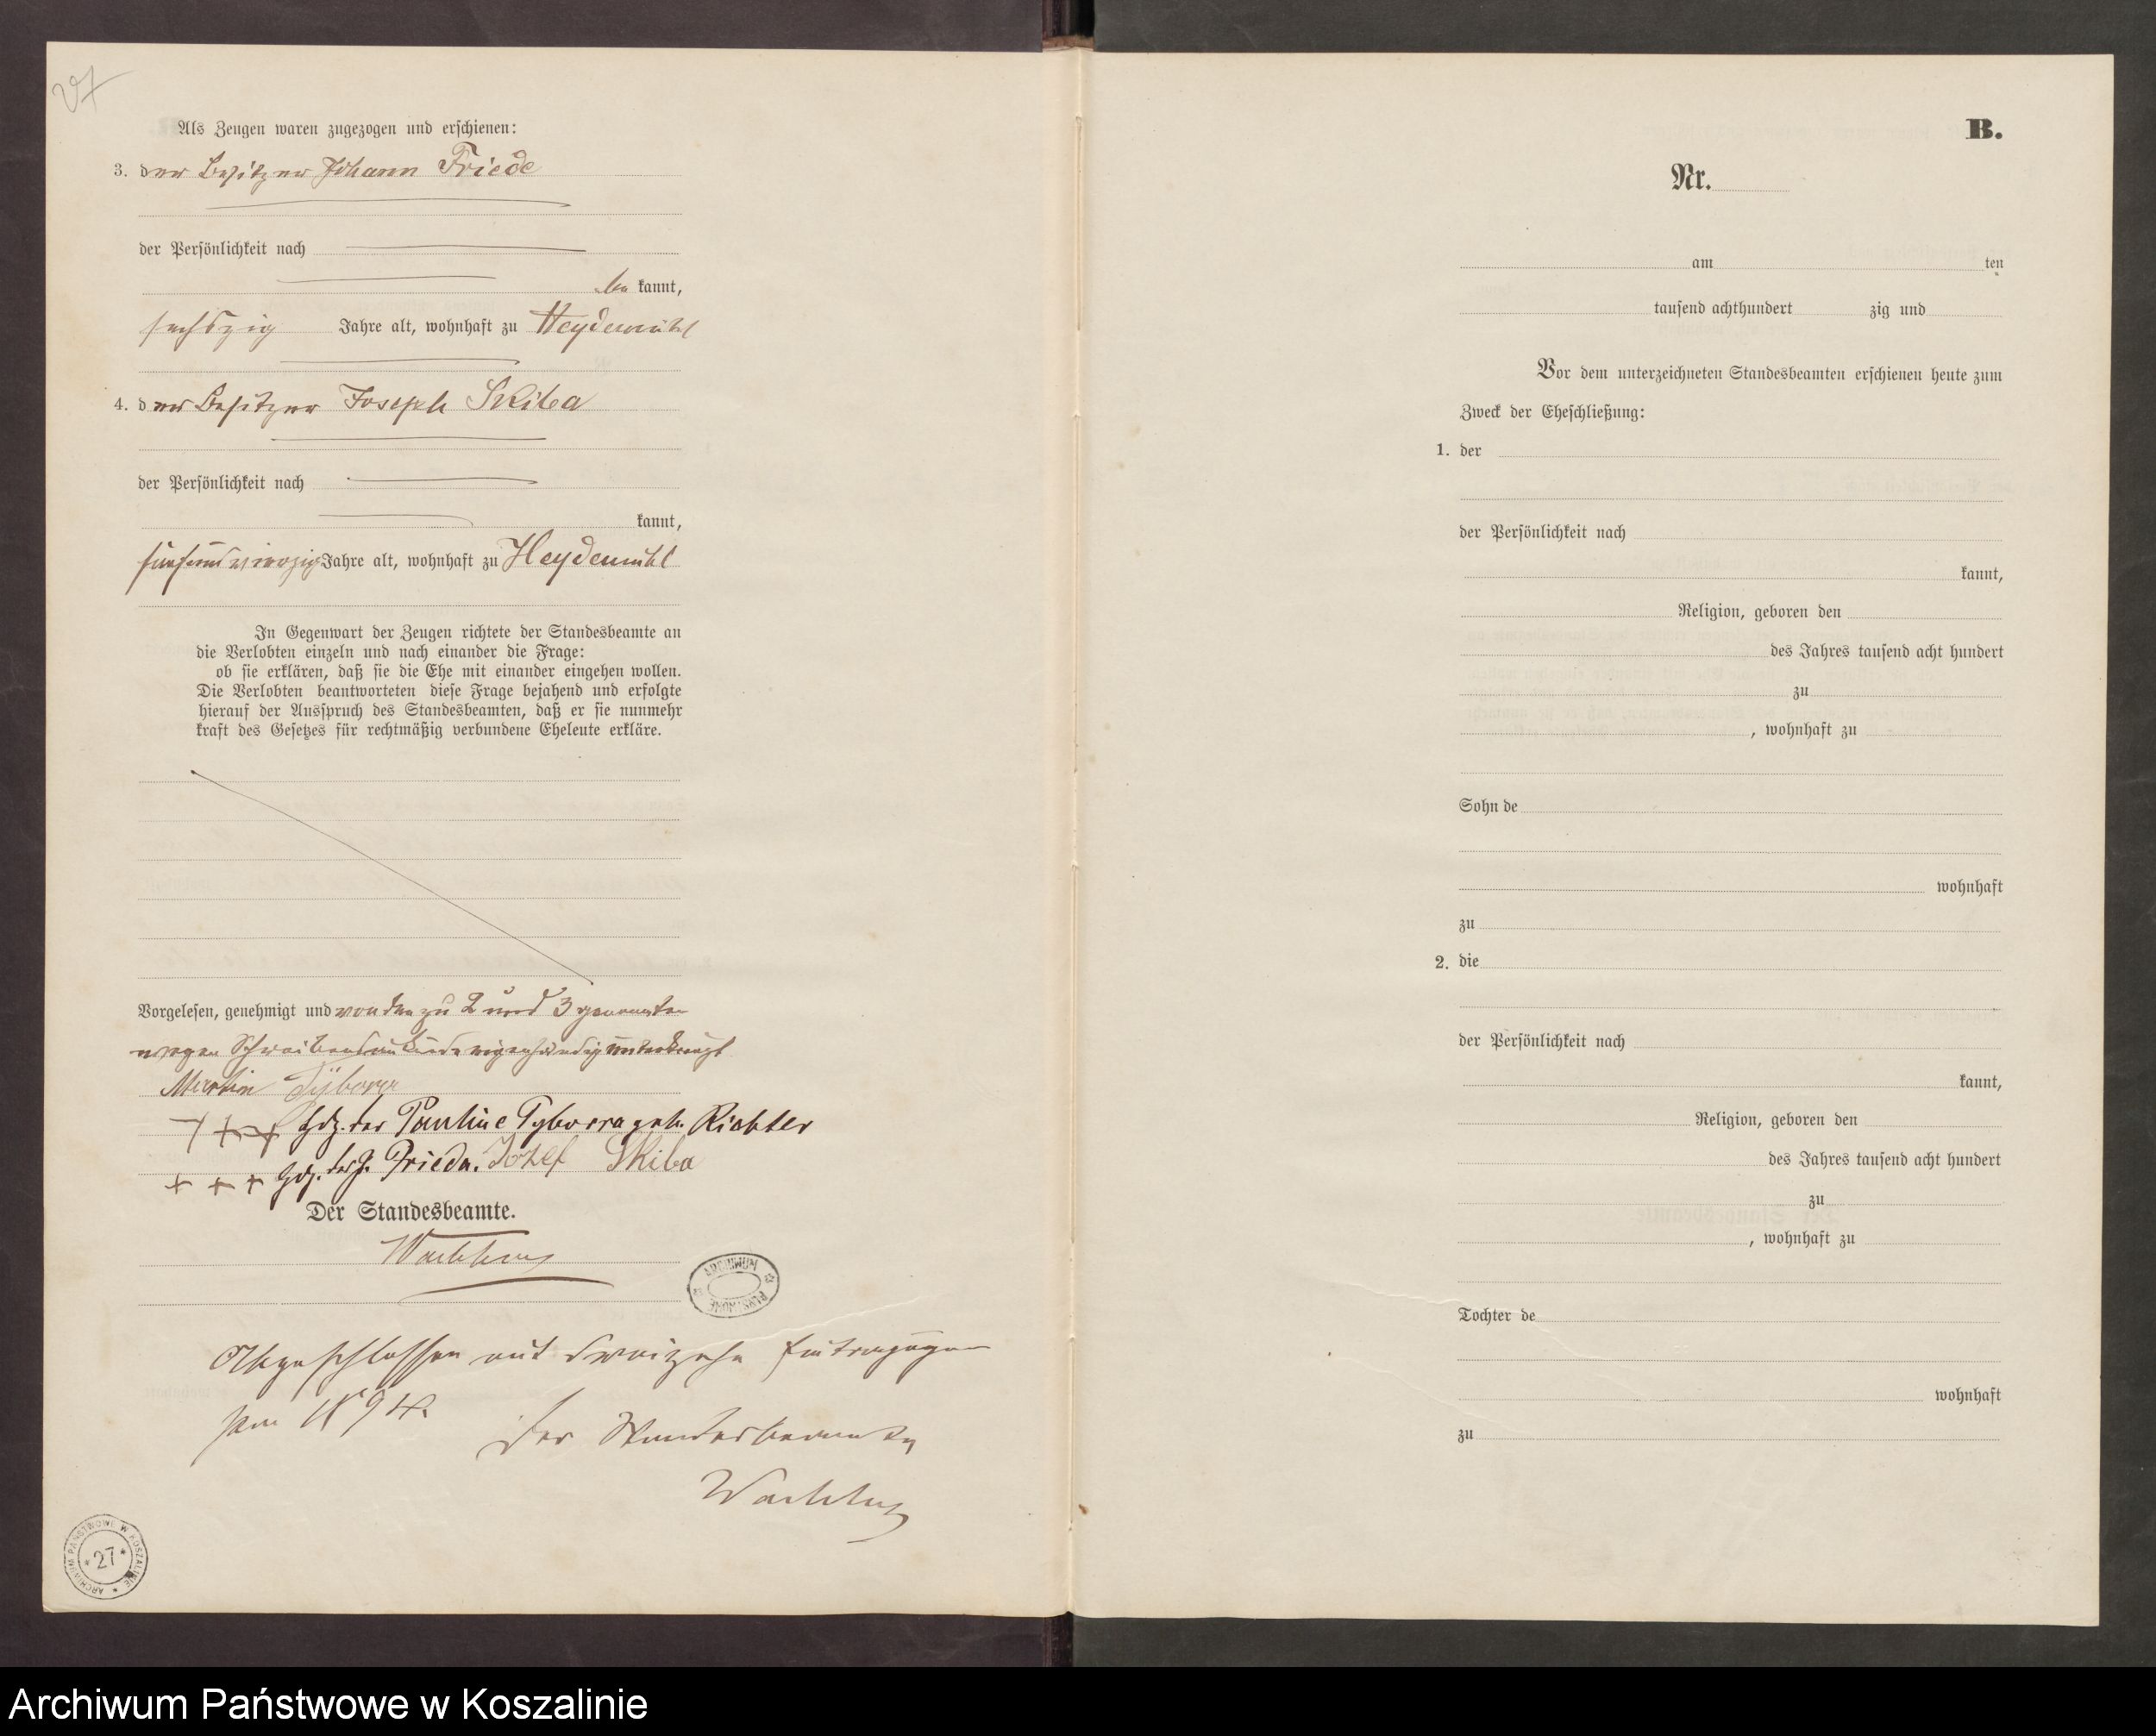 27
Als Zeugen waren zugezogen und erschienen:
3. der Besitzer Johann Friede
der Persönlichkeit nach
be kannt,
sechszig Jahre alt, wohnhaft zu Heydemühl
4. der Besitzer Joseph Skiba
der Persönlichkeit nach
kannt,
Jahre alt, wohnhaft zu Heydemühl
In Gegenwart der Zeugen richtete der Standesbeamte an
die Verlobten einzeln und nach einander die Frage:
ob sie erklären, daß sie die Ehe mit einander eingehen wollen.
Die Verlobten beantworteten diese Frage bejahend und erfolgte
hierauf der Ausspruch des Standesbeamten, daß er sie nunmehr
kraft des Gesetzes für rechtmäßig verbundene Eheleute erkläre.
Vorgelesen, genehmigt und von den zu 2 und 3 genannten
wegen Schreibensunkunde eigenhändig unterkreuzt
Martin Tyborra
+++ Hdz. der Pauline Tyborra geb. Richter
+++ Hdz. des J. Friede. Jozef Skiba
Der Standesbeamte.
ARCHIWUM PAŃSTWOWE
Abgeschlossen mit dreizehn Eintragungen
pro 1894.
Der Standesbeamte
ARCHIWUM PAŃSTWOWE W KOSZALINIE
* 27 *
B.
Nr.
am ten
tausend achthundert zig und
Vor dem unterzeichneten Standesbeamten erschienen heute zum
Zweck der Eheschließung:
1. der
der Persönlichkeit nach
kannt,
Religion, geboren den
des Jahres tausend acht hundert
zu
, wohnhaft zu
Sohn de
wohnhaft
zu
2. die
der Persönlichkeit nach
kannt,
Religion, geboren den
des Jahres tausend acht hundert
zu
, wohnhaft zu
Tochter de
wohnhaft
zu
Archiwum Państwowe w Koszalinie